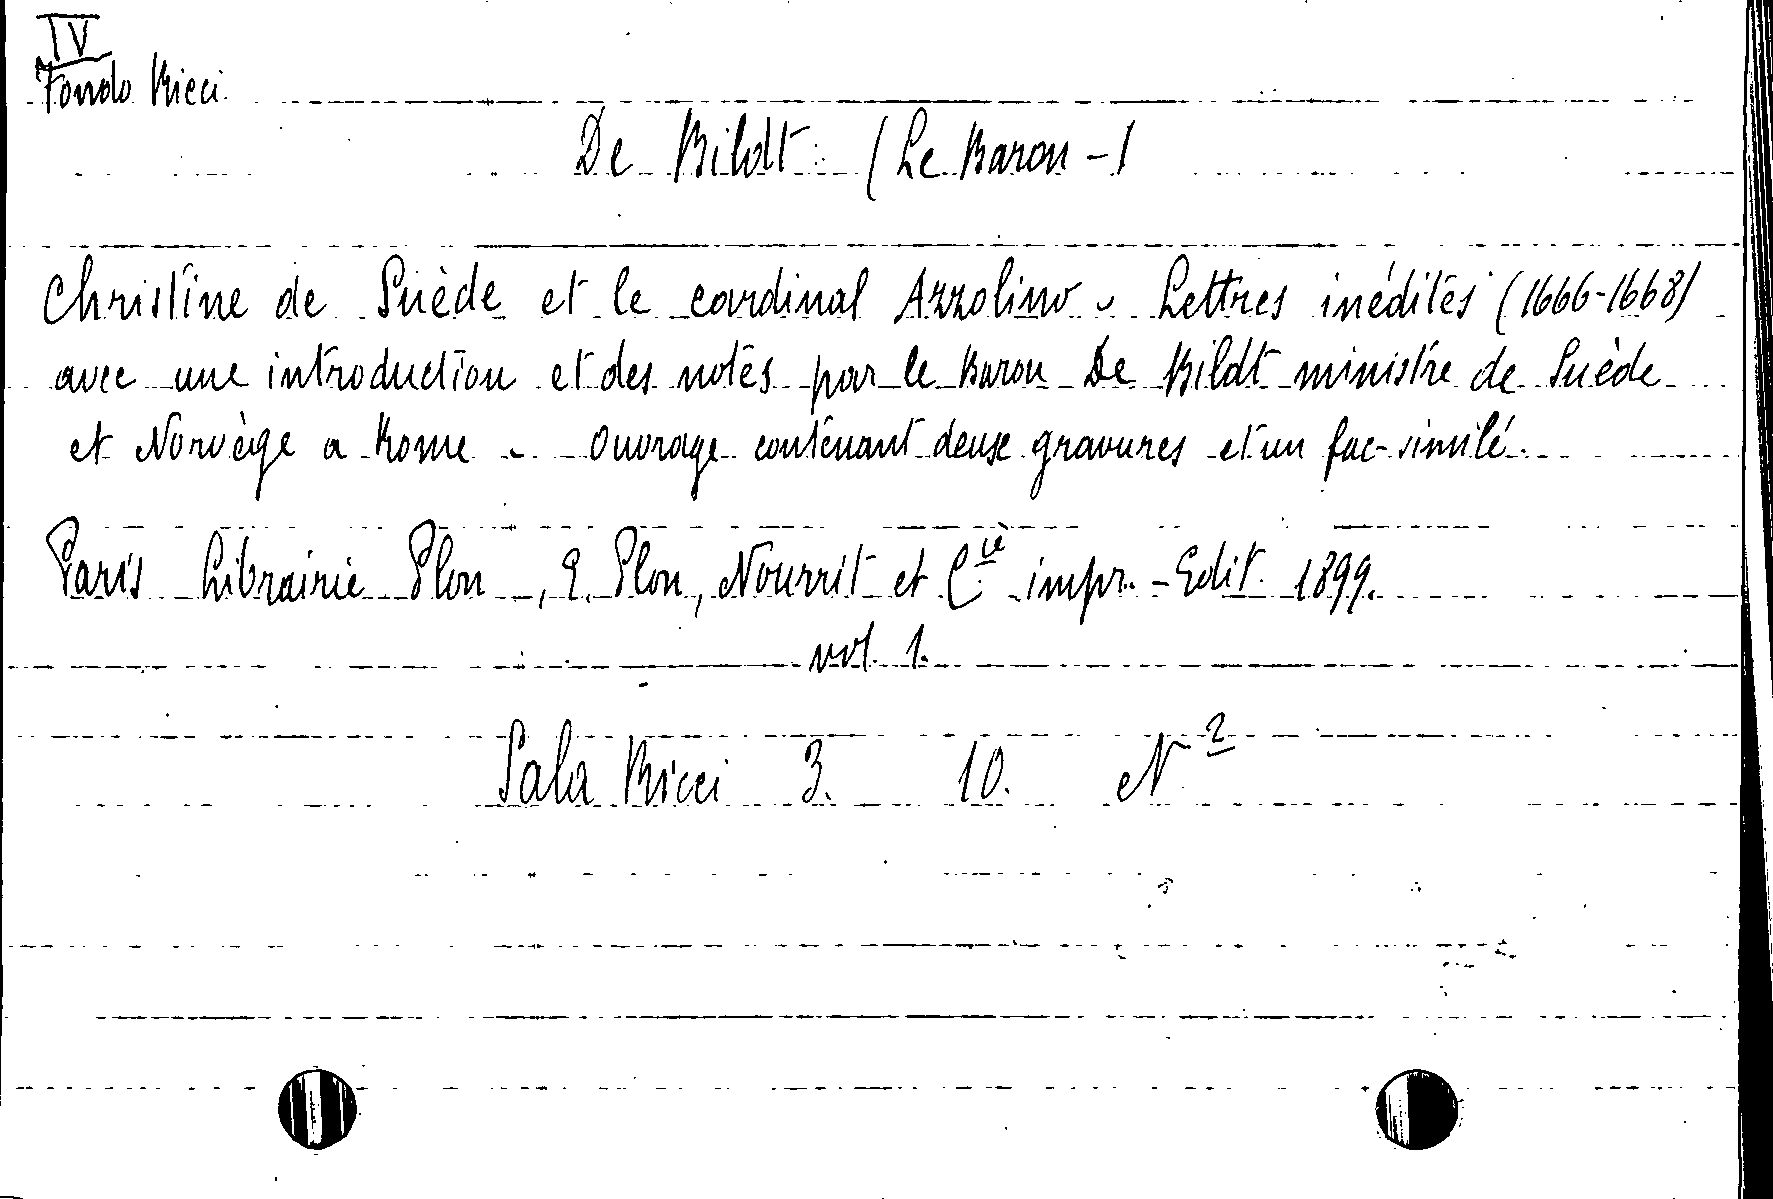 IV
Fondo Ricci
De Bildt (Le Baron -)
Christine de Suède et le cardinal Azzolino - Lettres inédites (1666-1668)
avec une introduction et des notes par le Baron De Bildt ministre de Suède
et Norvège a Rome - Ouvrage contenant deux gravures et un fac-similé.
Paris Librairie Plon, E. Plon, Nourrit et Cie impr. - Edit. 1899.
vol. 1.
Sala Ricci 3. 10. N 2